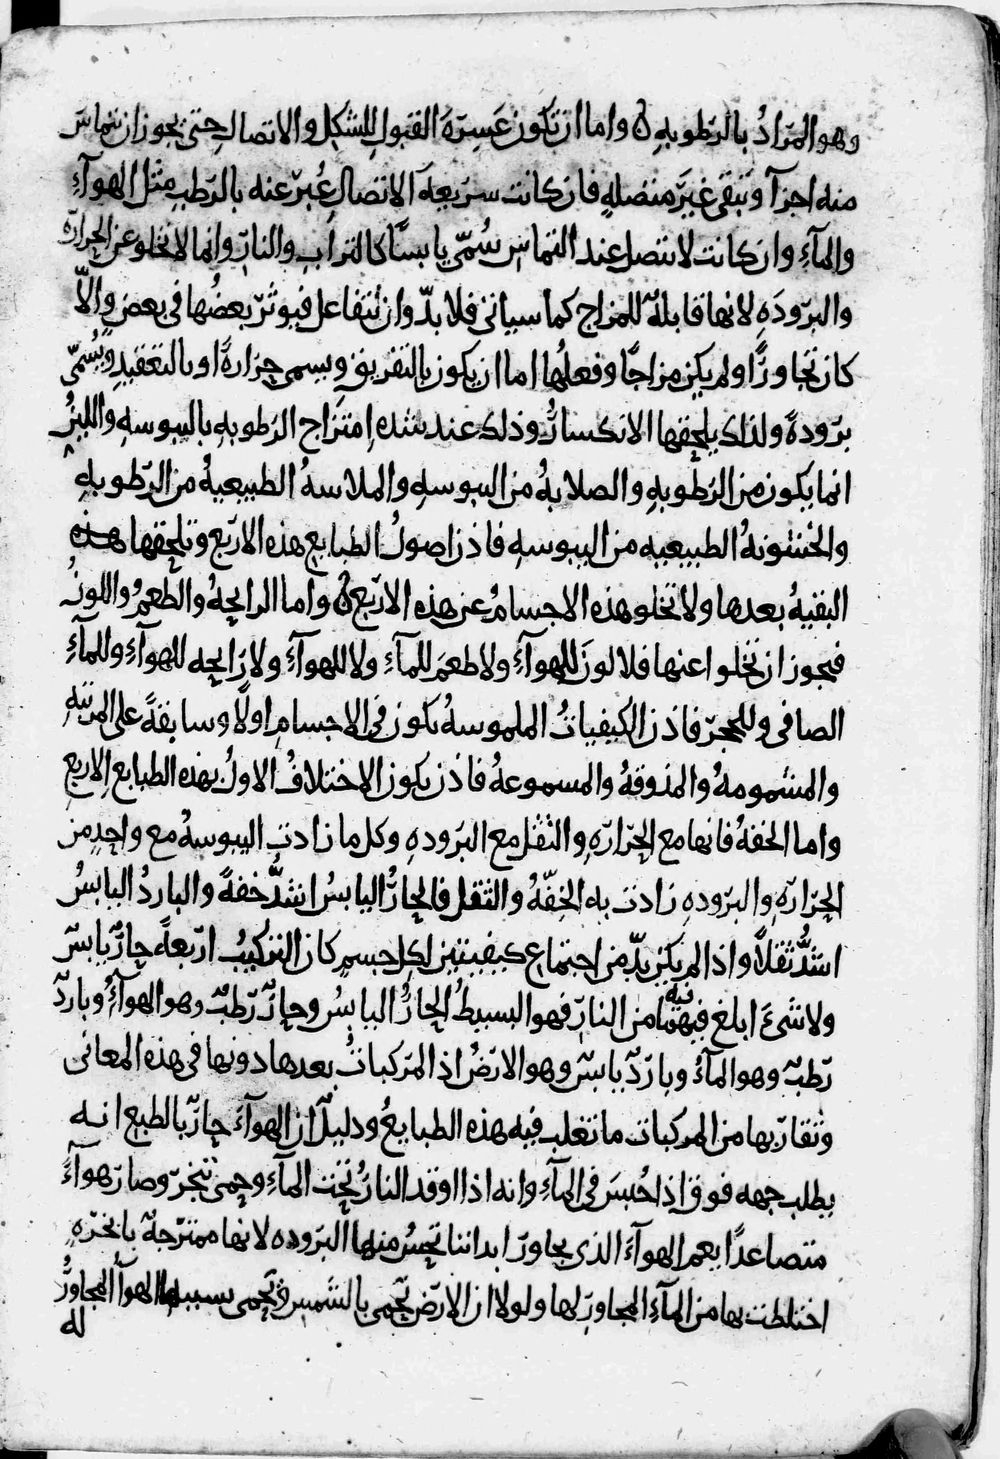 وهو المرادُ بالرّطوبهِ ۞ واما ان تكون عَسِرَةَ القبولِ للشكلِ والاتصالِ حتى يجوز ان تتماسّ
منه اجزآ وتبقى غيرَ متصله فان كانت سريعةَ الاتصال عُبّر عنه بالرّطبِ مثل الهوآءِ
والمآءِ وان كانت لا تتصل عند التماس سُمّي يابسًا كالترابِ والنارِ وانما لا تخلو عن الحرارّه
والبرودَهِ لانها قابلةٌ للمزاج كما سياتي فلا بدّ وان تتفاعل فيوثّر بعضُها في بعضٍ والّا
كان تجاورًا ولم يكن مزاجًا وفعلُها اما ان يكون بالتفريق ويسمى حرارةً او بالتعقيدِ ويُسمّى
برودةً ولذلك يلحقها الانكسارُ وذلك عند شده امتزاج الرطوبهِ باليبوسهِ واللينُ
انما يكون من الرطوبهِ والصلابهُ من اليبوسهِ والملاسهُ الطبيعيهُ من الرّطوبهِ
والخشونهُ الطبيعيه من اليبوسهِ فاذن اصولُ الطبايع هذه الاربع وتلحقها هذه
البقيهُ بعدها ولا تخلو هذه الاجسامُ عن هذه الاربّع ۞ واما الرايحهُ والطعمُ واللونُ
فيجوز ان تخلوا عنها فلا لونَ للهوآءِ ولا طعمَ للمآءِ ولا للهوآءِ ولا رايحه للهوآءِ وللمآءِ
الصافي وللحجرّ فاذن الكيفياتُ الملموسهُ تكون في الاجسامِ اولًا وسابقةً على المرتبهِ
والمشمومهُ والمذوقهُ والمسموعهُ فاذن يكون الاختلافُ الاولُ بهذه الطبابع الاربعِ
واما الخفهُ فانها مع الحرارّهِ والثقل مع البرودهِ وكل ما زادت اليبوسهُ مع واحدٍ من
الحرّارّهِ والبرّودهِ زادت به الخفّهُ والثقل فالحارُّ اليابسُ اشدُّ خفةً والباردُ اليابسُ
اشدُّ ثقلًا واذا لم يكن بدّ من اجتماع كيفيتين لكل جسمٍ كان التركيبُ ارّبعةً حارٌّ يابسّ
ولا شيءَ ابلغ فيهما من النارّ فهو البسيطُ الحارُّ اليابسُ وحارّ رّطبّ وهو الهوآءُ وباردّ
رّطبّ وهو المآءُ وباردّ يابسّ وهو الارّضُ اذ المرّكباتُ بعدها دونها في هذه المعاني
وتقارّبها من المركبات ما تغلب فيه هذه الطبايعُ ودليلٌ ان الهوآءَ حارّ بالطبع انه
يطلب جهه فوق اذا حُبسَ في المآءِ وانه اذا اوقد النارُ تحت المآءِ وحمى تبخرّ وصارّ هوآءً
متصاعدًا نعم الهوآءَ الذي يجاورّ ابداننا تحسُ منها البرّوده لانها ممتزّجهٌ بابخرّهِ
اختلطت بها من المآءِ المجاورِ لها ولولا ان الارّض تحمى بالشمس وتحمى بسببها الهوآءُ المجاورُ
له